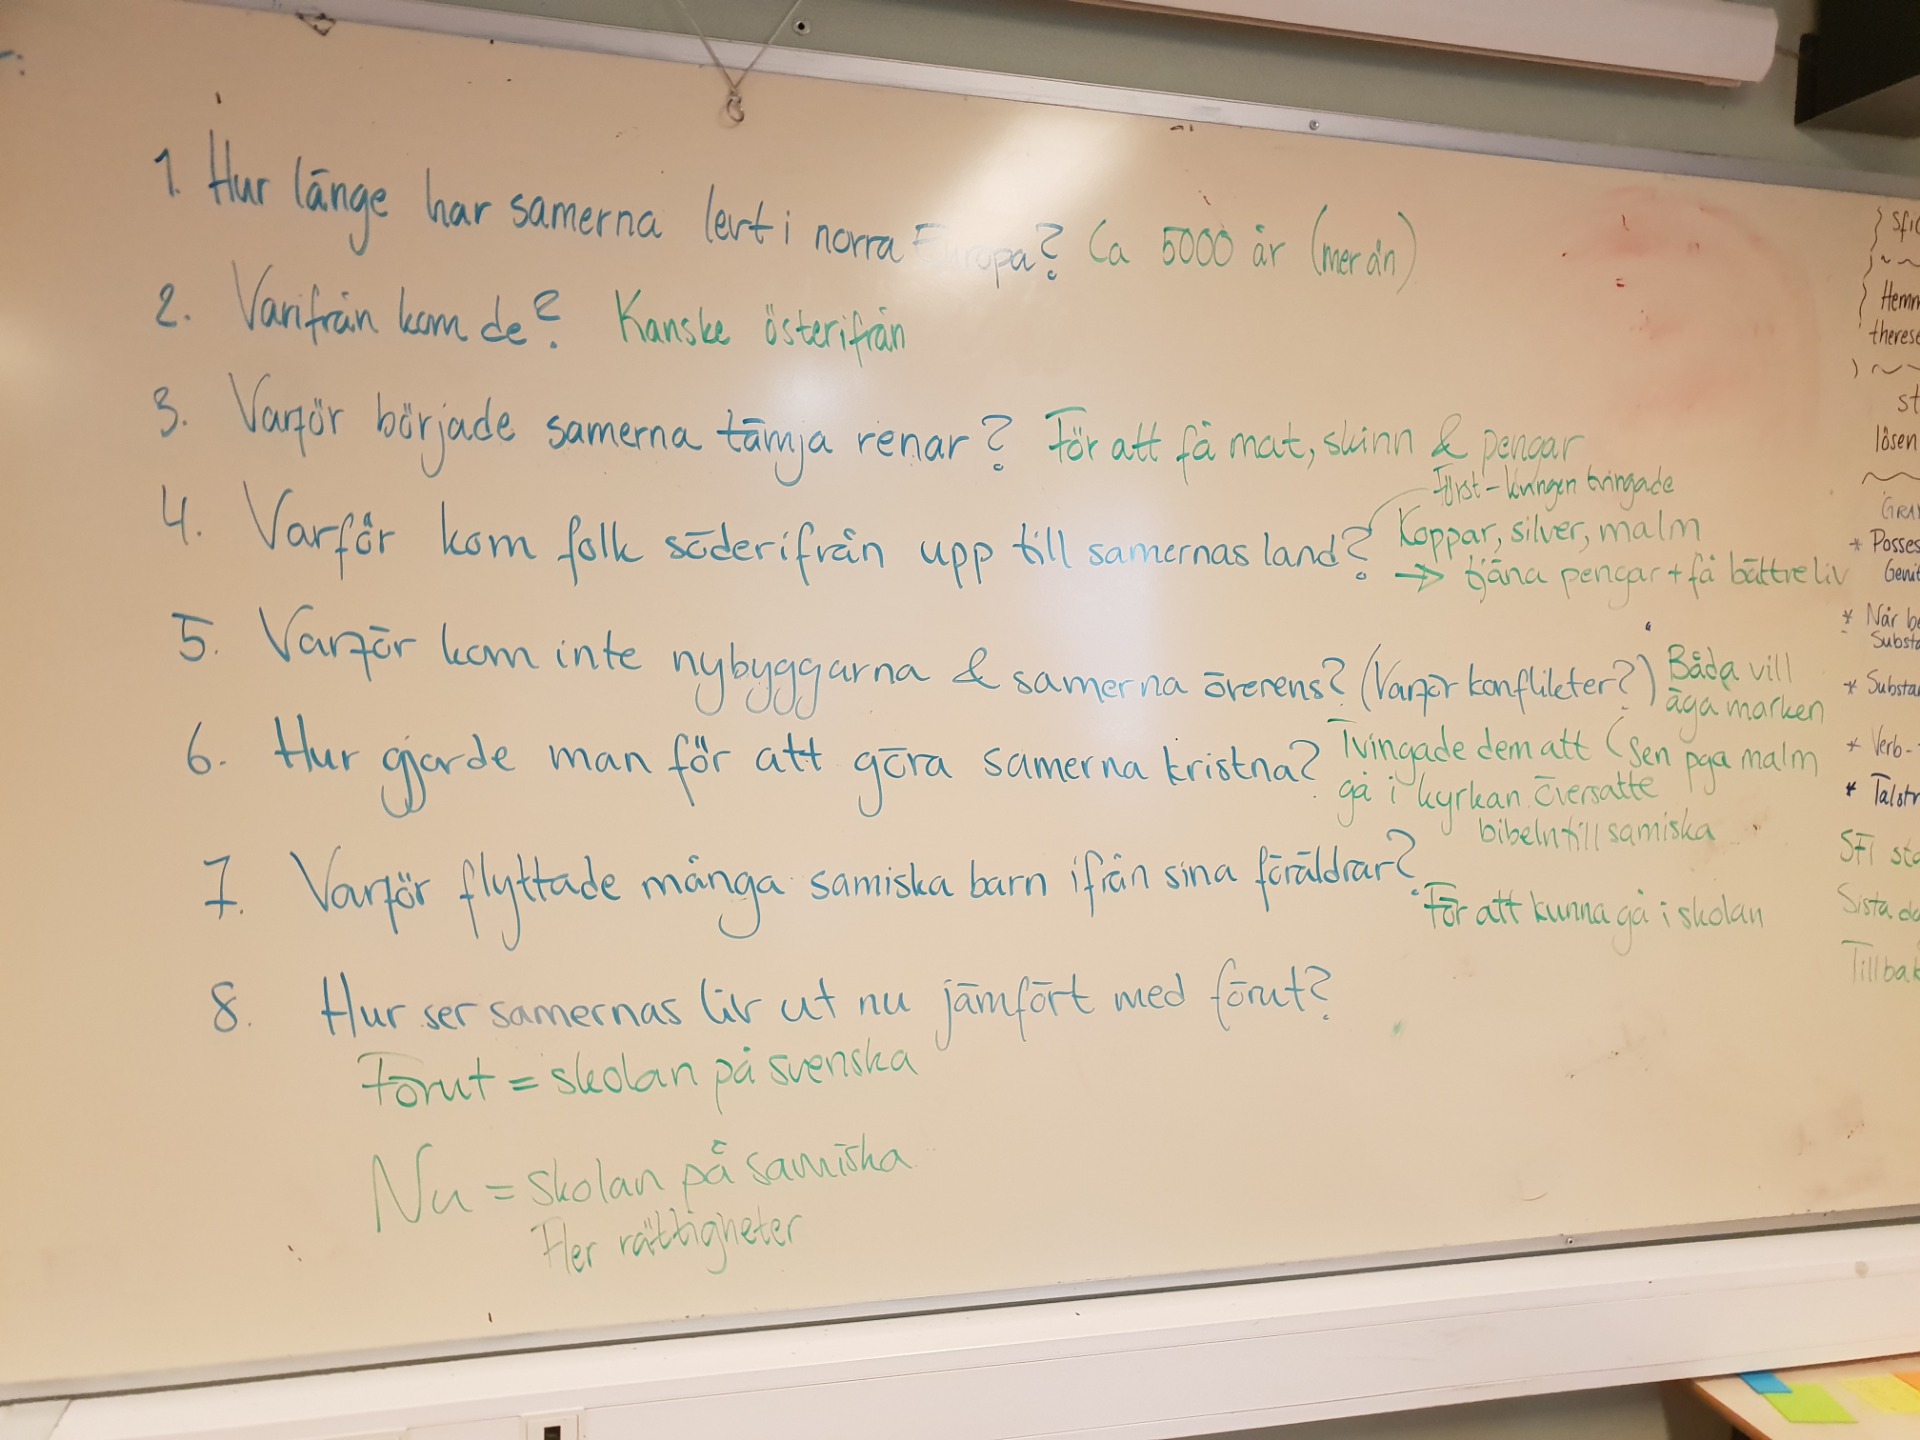 1. Hur länge har samerna levt i norra Europa? Ca 5000 år (mer än)
2. Varifrån kom de? Kanske österifrån
3. Varför började samerna tämja renar? För att få mat, skinn & pengar
Först - kungen tvingade
4. Varför kom folk söderifrån upp till samernas land? Koppar, silver, malm
→ tjäna pengar + få bättre liv
5. Varför kom inte nybyggarna & samerna överens? (Varför konflikter?) Båda vill
äga marken
(sen pga malm
6. Hur gjorde man för att göra samerna kristna? Tvingade dem att
gå i kyrkan. Översatte
bibeln till samiska
7. Varför flyttade många samiska barn ifrån sina föräldrar?
För att kunna gå i skolan
8. Hur ser samernas liv ut nu jämfört med förut?
Förut = skolan på svenska
Nu = skolan på samiska
Fler rättigheter
Sfi
Hemm
therese
st
lösen
GRA
* Posses
Genit
* När be
Substa
* Substa
* Verb-
* Talstr
SFI sta
Sista da
Tillbak